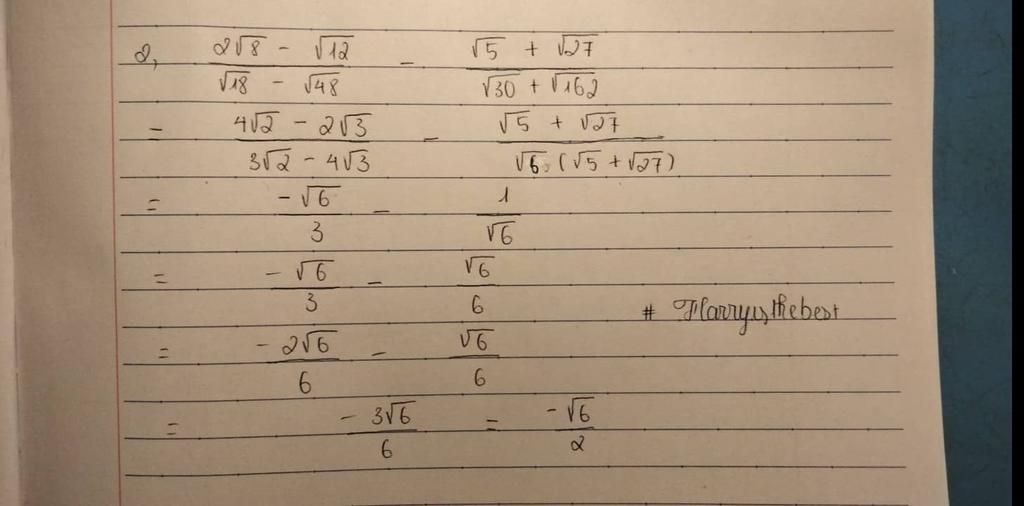 2, (2√8 - √12)/(√18 - √48) - (√5 + √27)/(√30 + √162)
= (4√2 - 2√3)/(3√2 - 4√3) - (√5 + √27)/(√6.(√5 + √27))
= -√6/3 - 1/√6
= -√6/3 - √6/6
# Harryisthebest
= -2√6/6 - √6/6
= -3√6/6 = -√6/2